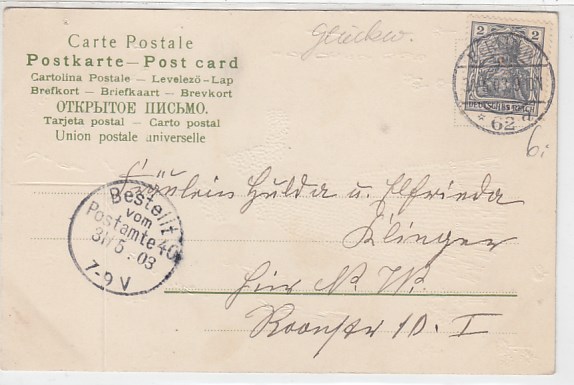 Glückw.
Carte Postale
Postkarte – Post card
Cartolina Postale – Levelező-Lap
Brefkort – Briefkaart – Brevkort
ОТКРЫТОЕ ПИСЬМО.
Tarjeta postal – Carto postal
Union postale universelle
2 2
DEUTSCHES REICH
* 62 a
6:
Fräulein Hulda u. Elfrieda
Klinger
Hier N. W.
Roonstr 10. I
Bestellt
vom
Postamte 40
31/5.03
7-9 V